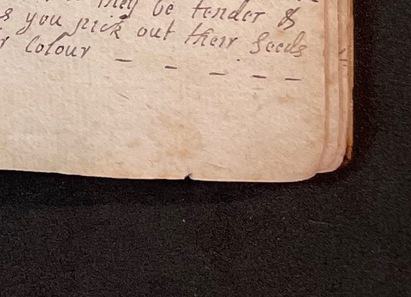 they be tender &
s you pick out their Seeds
r Colour – – – – –